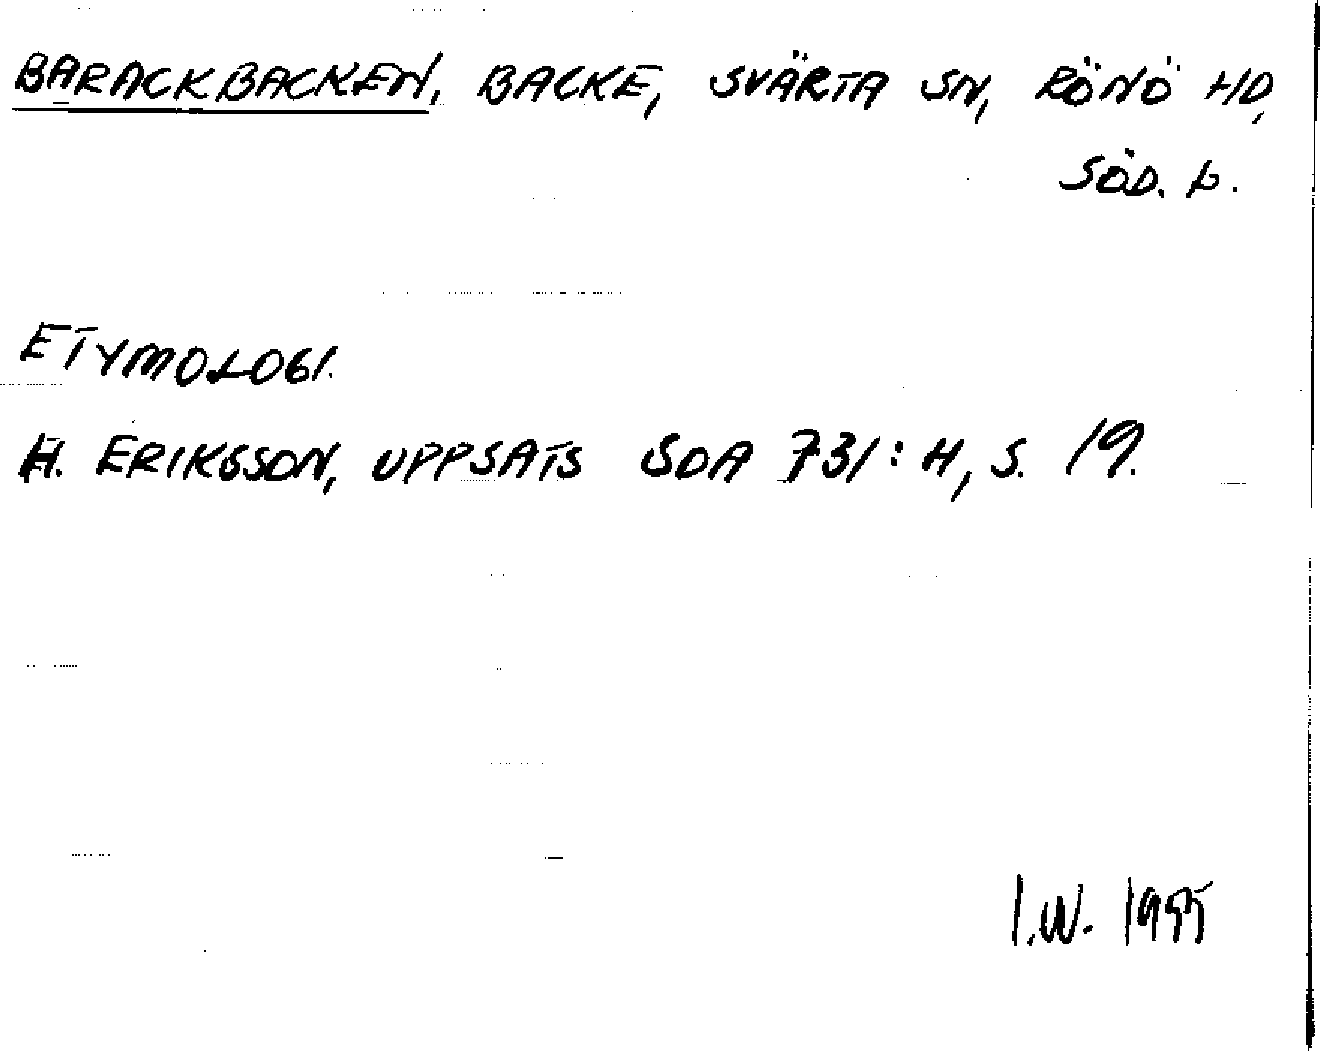 BARACKBACKEN, BACKE, SVÄRTA SN, RÖNÖ HD,
SÖD. L.
ETYMOLOGI.
H. ERIKSSON, UPPSATS SOA 731:H, S. 19.
I.W. 1955